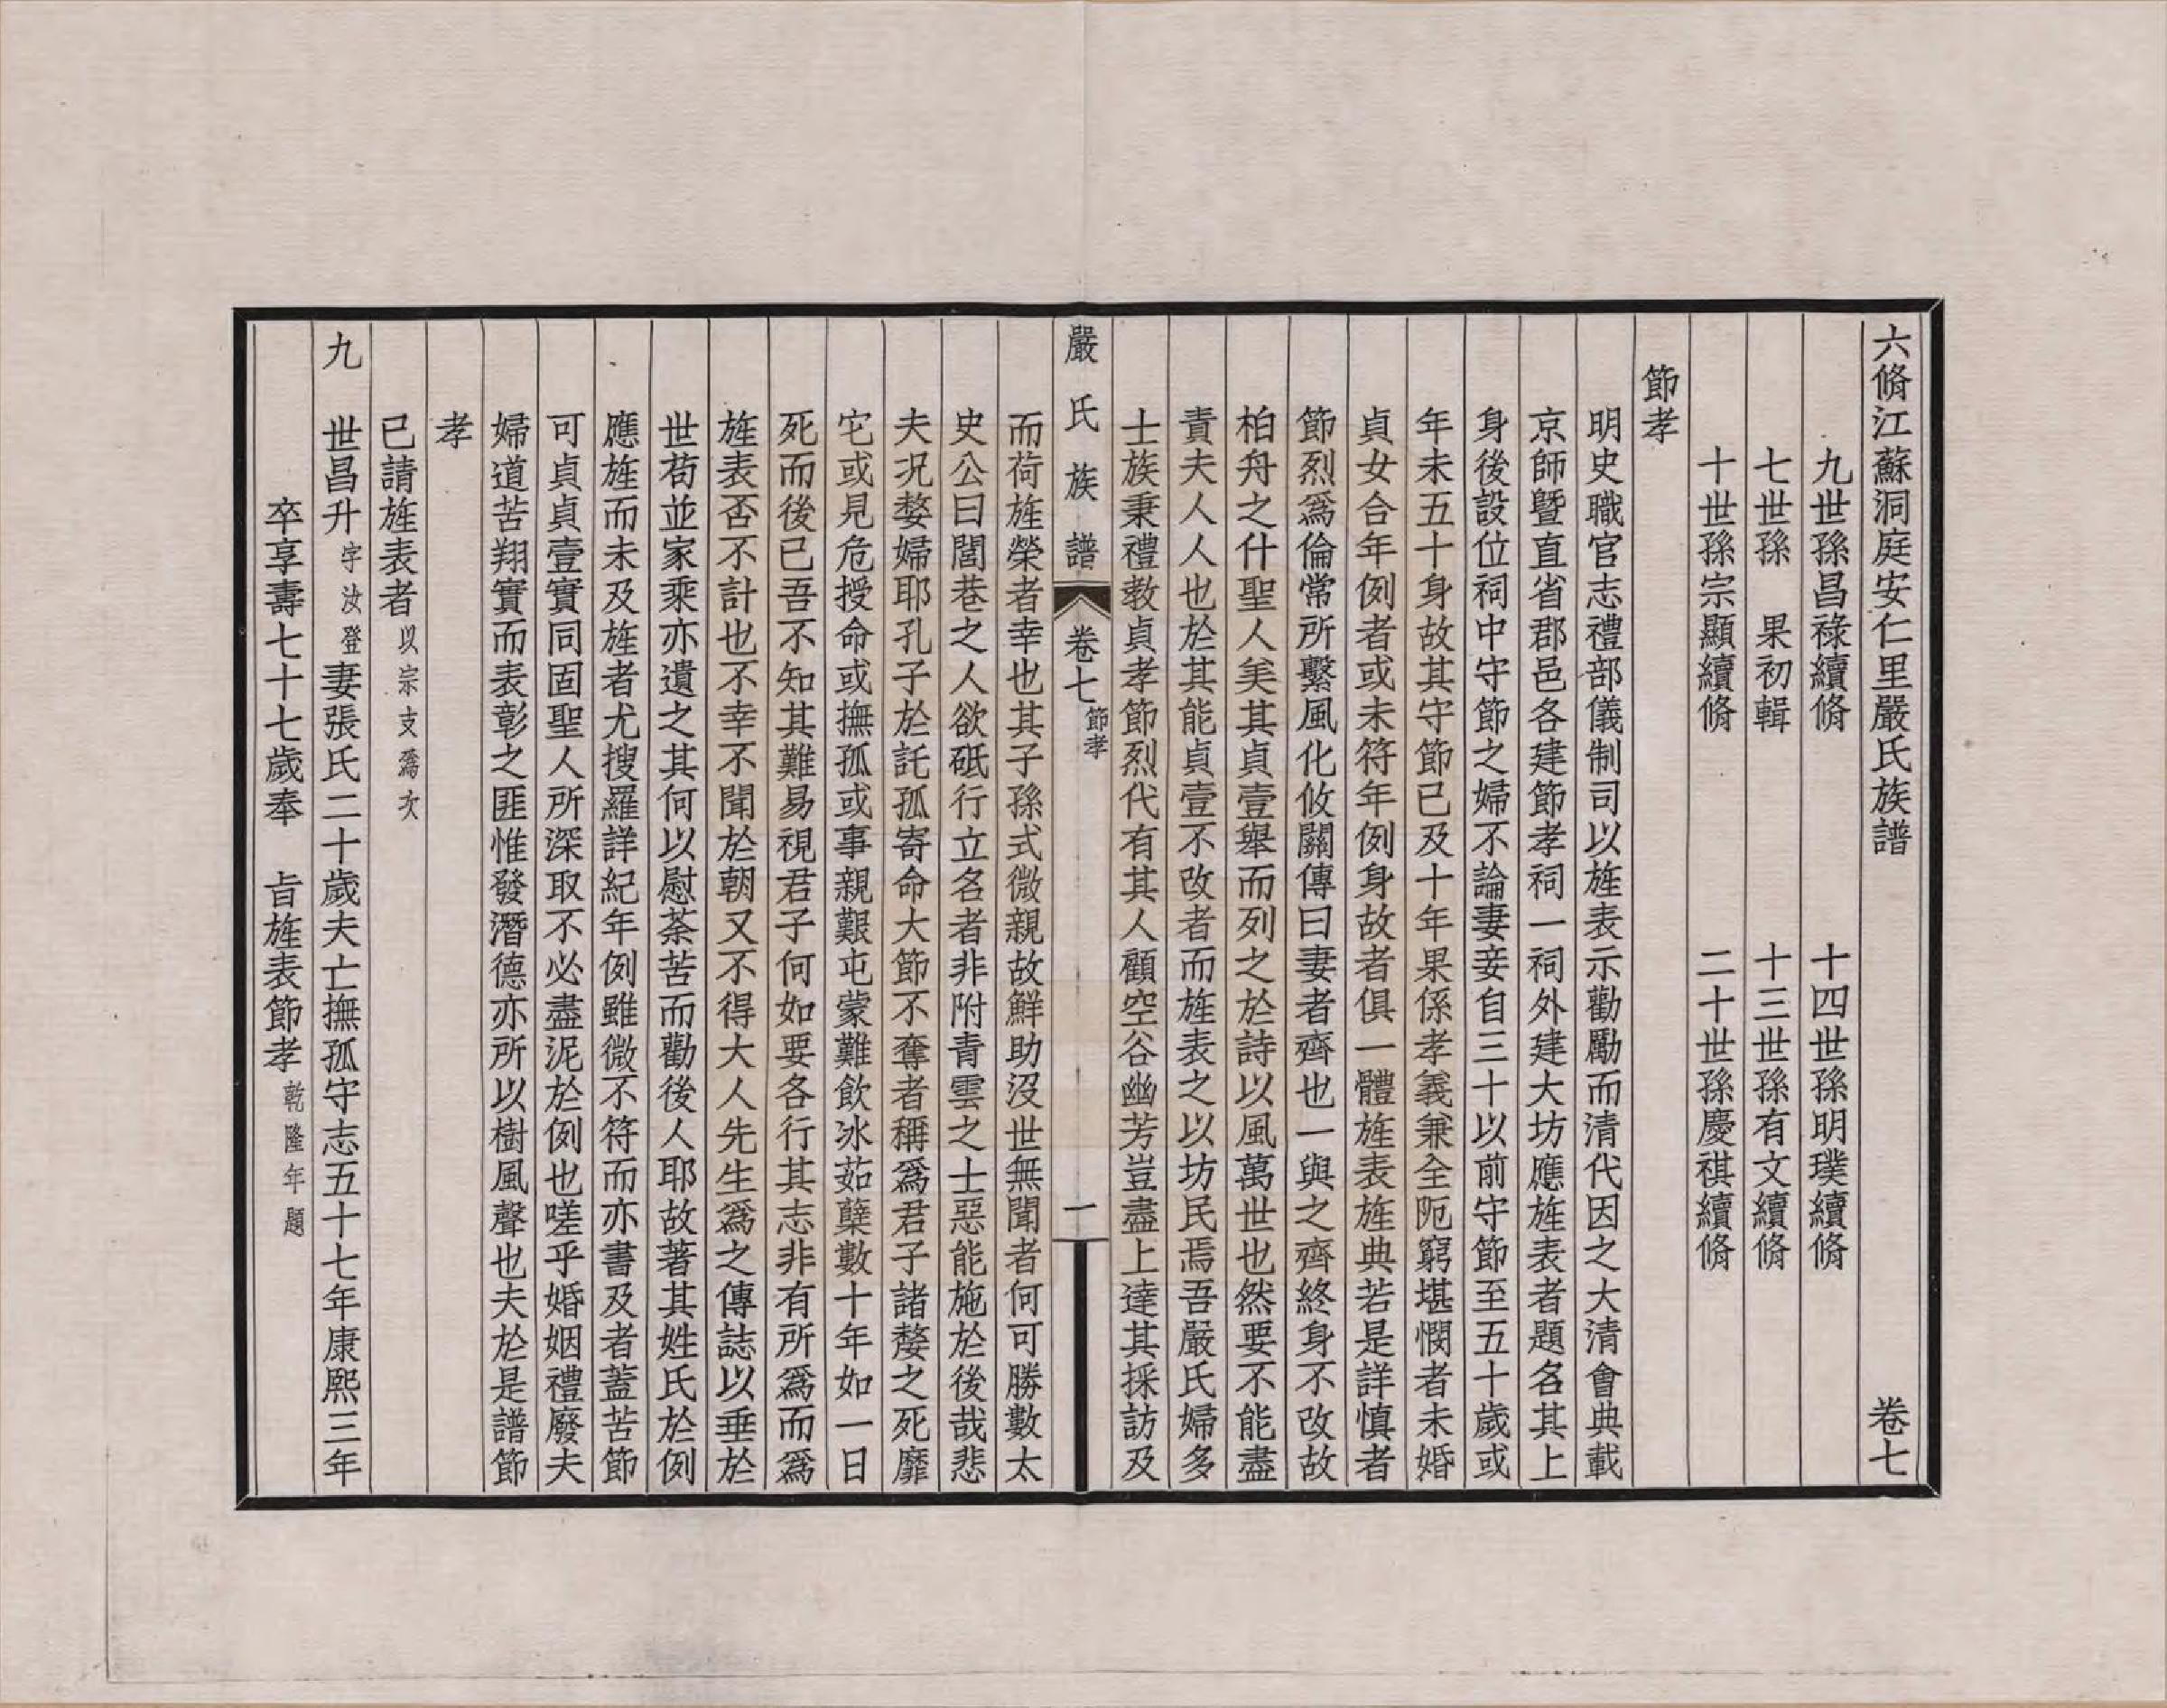 六脩江蘇洞庭安仁里嚴氏族譜　卷七
九世孫昌祿續脩　十四世孫明璞續脩
七世孫　果初輯　十三世孫有文續脩
十世孫宗顯續脩　二十世孫慶祺續脩
節孝
明史職官志禮部儀制司以旌表示勸勵而清代因之大清會典載
京師暨直省郡邑各建節孝祠一祠外建大坊應旌表者題名其上
身後設位祠中守節之婦不論妻妾自三十以前守節至五十歲或
年未五十身故其守節已及十年果係孝義兼全阨窮堪憫者未婚
貞女合年例者或未符年例身故者俱一體旌表旌典若是詳慎者
節烈爲倫常所繫風化攸關傳曰妻者齊也一與之齊終身不改故
柏舟之什聖人美其貞壹舉而列之於詩以風萬世也然要不能盡
責夫人人也於其能貞壹不改者而旌表之以坊民焉吾嚴氏婦多
士族秉禮教貞孝節烈代有其人顧空谷幽芳豈盡上達其採訪及
嚴氏族譜　卷七　節孝　一
而荷旌榮者幸也其子孫式微親故鮮助沒世無聞者何可勝數太
史公曰閭巷之人欲砥行立名者非附青雲之士惡能施於後哉悲
夫況嫠婦耶孔子於託孤寄命大節不奪者稱爲君子諸嫠之死靡
它或見危授命或撫孤或事親艱屯蒙難飲冰茹蘗數十年如一日
死而後已吾不知其難易視君子何如要各行其志非有所爲而爲
旌表否不計也不幸不聞於朝又不得大人先生爲之傳誌以垂於
世苟並家乘亦遺之其何以慰荼苦而勸後人耶故著其姓氏於例
應旌而未及旌者尤搜羅詳紀年例雖微不符而亦書及者蓋苦節
可貞貞壹實同固聖人所深取不必盡泥於例也嗟乎婚姻禮廢夫
婦道苦翔實而表彰之匪惟發潛德亦所以樹風聲也夫於是譜節
孝
已請旌表者以宗支爲次
九　世昌升字汝登妻張氏二十歲夫亡撫孤守志五十七年康熙三年
卒享壽七十七歲奉　旨旌表節孝乾隆年題